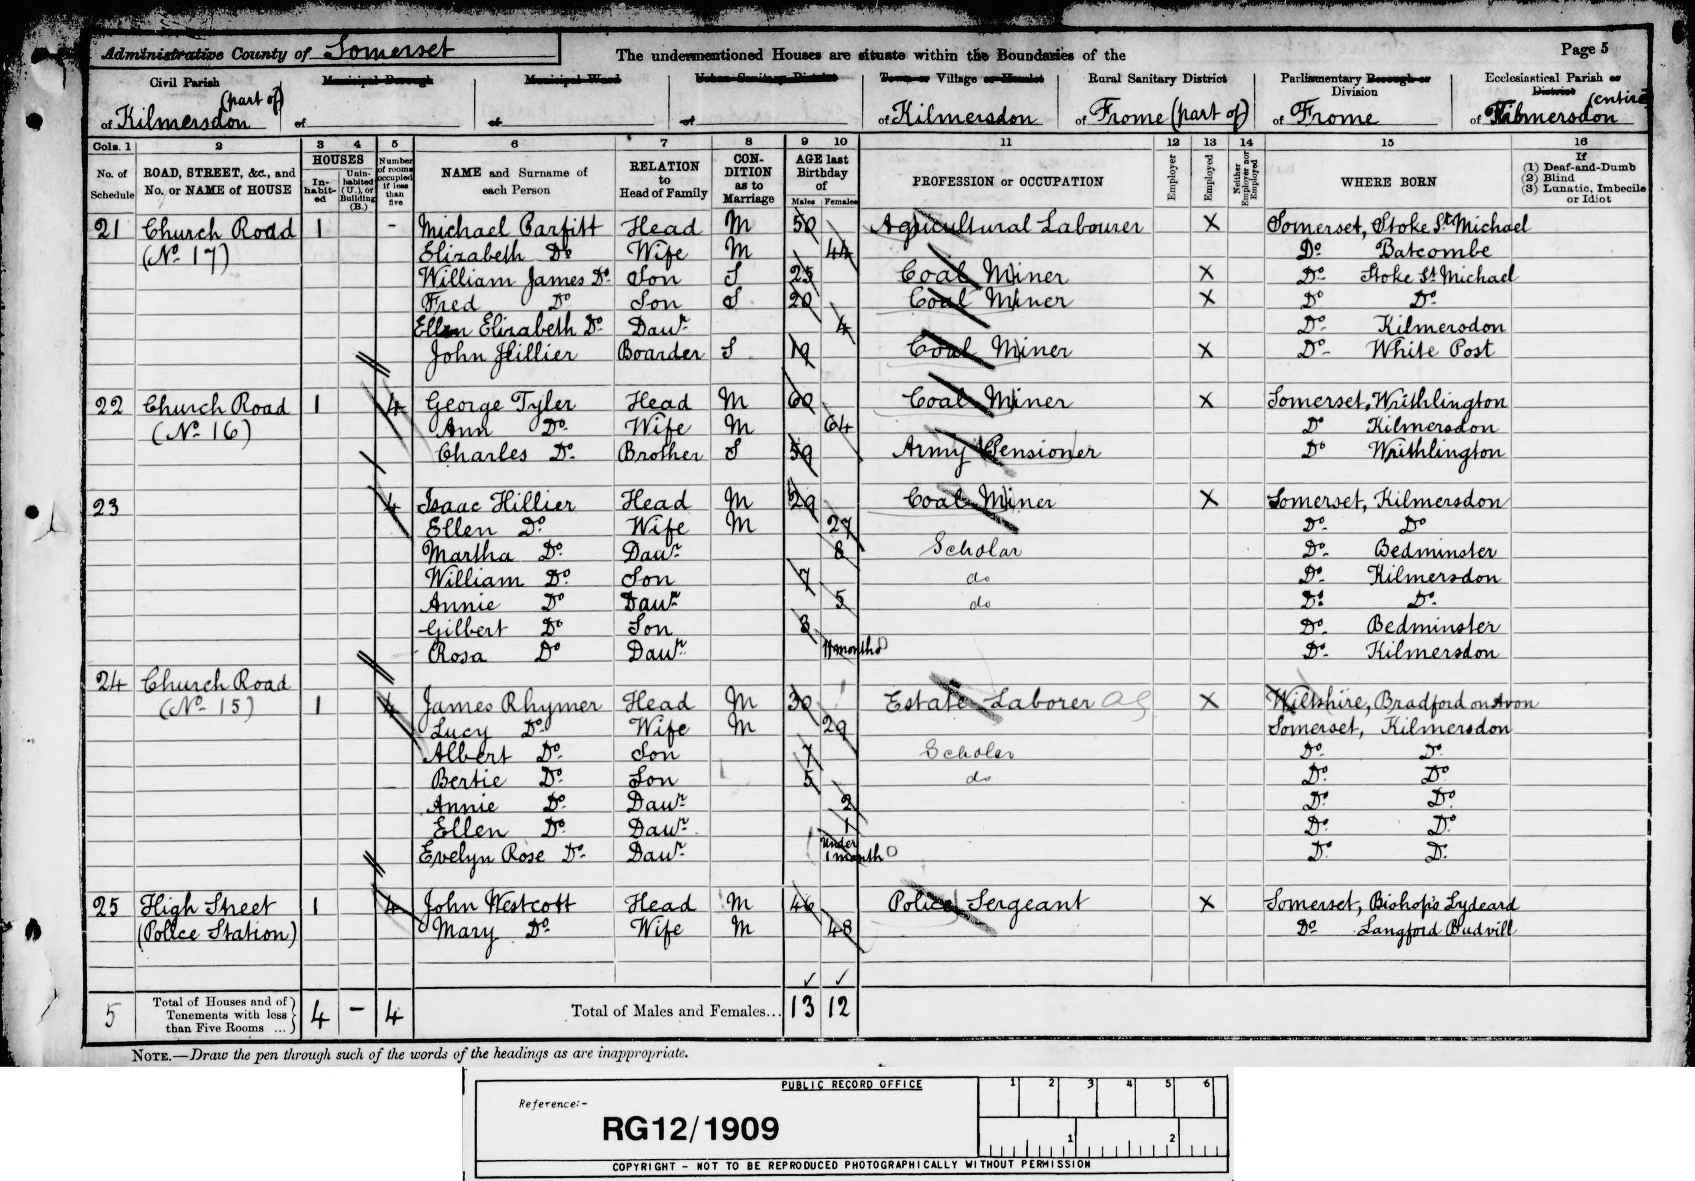 Administrative County of Somerset The undermentioned Houses are situate within the Boundaries of the Page 5
Civil Parish Municipal Borough Municipal Ward Urban Sanitary District Town or Village or Hamlet Rural Sanitary District Parliamentary Borough or Division Ecclesiastical Parish or District
of Kilmersdon (part of) of of of of Kilmersdon of Frome (part of) of Frome of Kilmersdon (entire)
Cols. 1 2 3 4 5 6 7 8 9 10 11 12 13 14 15 16
No. of Schedule ROAD, STREET, &c., and No. or NAME of HOUSE HOUSES Inhabited Uninhabited (U.), or Building (B.) Number of rooms occupied if less than five NAME and Surname of each Person RELATION to Head of Family CONDITION as to Marriage AGE last Birthday of Males Females PROFESSION or OCCUPATION Employer Employed Neither Employer nor Employed WHERE BORN If (1) Deaf-and-Dumb (2) Blind (3) Lunatic, Imbecile or Idiot
21 Church Road 1 - Michael Parfitt Head M 50 Agricultural Labourer X Somerset, Stoke St Michael
(No. 17) Elizabeth Do Wife M 44 Do Batcombe
William James Do. Son S 25 Coal Miner X Do. Stoke St Michael
Fred Do Son S 20 Coal Miner X Do Do.
Ellen Elizabeth Do. Daur. 4 Do. Kilmersdon
John Hillier Boarder S 19 Coal Miner X Do. White Post
22 Church Road 1 4 George Tyler Head M 60 Coal Miner X Somerset, Writhlington
(No. 16) Ann Do. Wife M 64 Do Kilmersdon
Charles Do. Brother S 59 Army Pensioner Do Writhlington
23 4 Isaac Hillier Head M 29 Coal Miner X Somerset, Kilmersdon
Ellen Do. Wife M 27 Do. Do
Martha Do. Daur. 8 Scholar Do. Bedminster
William Do. Son 7 do Do. Kilmersdon
Annie Do Daur. 5 do Do. Do.
Gilbert Do Son 3 Do. Bedminster
Rosa Do Daur. 11 months Do. Kilmersdon
24 Church Road
(No. 15) 1 4 James Rhymer Head M 30 Estate Laborer Ag X Wiltshire, Bradford on Avon
Lucy Do. Wife M 29 Somerset, Kilmersdon
Albert Do. Son 7 Scholar Do. Do.
Bertie Do. Son 5 do Do. Do.
Annie Do. Daur. 2 Do. Do.
Ellen Do. Daur. 1 Do. Do.
Evelyn Rose Do. Daur. Under 1 month Do. Do.
25 High Street 1 4 John Westcott Head M 46 Police Sergeant X Somerset, Bishops Lydeard
(Police Station) Mary Do. Wife M 48 Do. Langford Budvill
5 Total of Houses and of Tenements with less than Five Rooms ... 4 - 4 Total of Males and Females... 13 12
NOTE.—Draw the pen through such of the words of the headings as are inappropriate.
PUBLIC RECORD OFFICE 1 2 3 4 5 6
Reference:-
RG12/1909 1 2
COPYRIGHT - NOT TO BE REPRODUCED PHOTOGRAPHICALLY WITHOUT PERMISSION